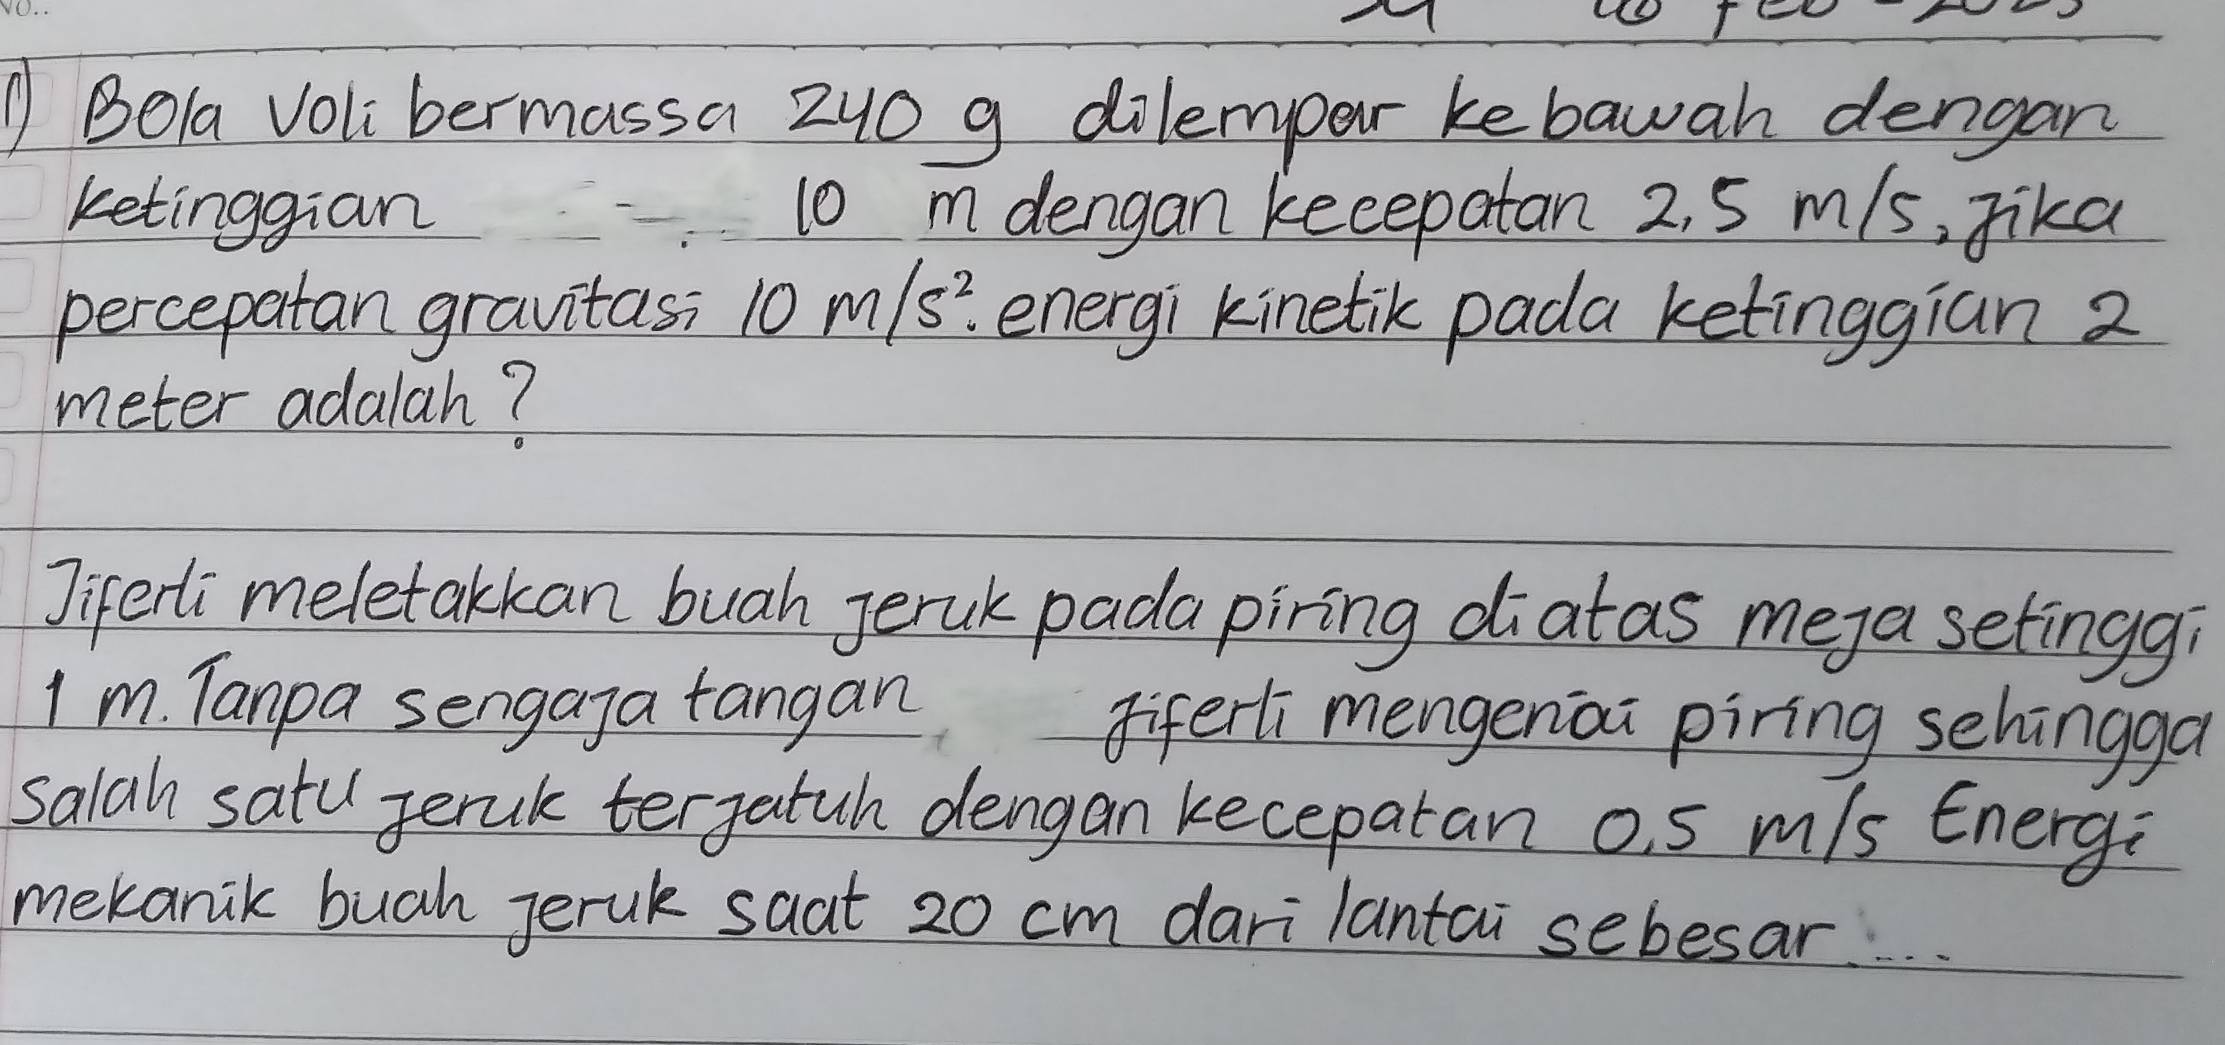 No..
1) Bola Voli bermassa 240 g dilempar kebawah dengan
ketinggian 10 m dengan kecepatan 2,5 m/s, jika
percepatan gravitasi 10 m/s². energi kinetik pada ketinggian 2
meter adalah?
Jiferli meletakkan buah jeruk pada piring diatas meja setinggi
1 m. Tanpa sengaja tangan jiferli mengenai piring sehingga
salah satu jeruk terjatuh dengan kecepatan 0,5 m/s Energi
mekanik buah jeruk saat 20 cm dari lantai sebesar....